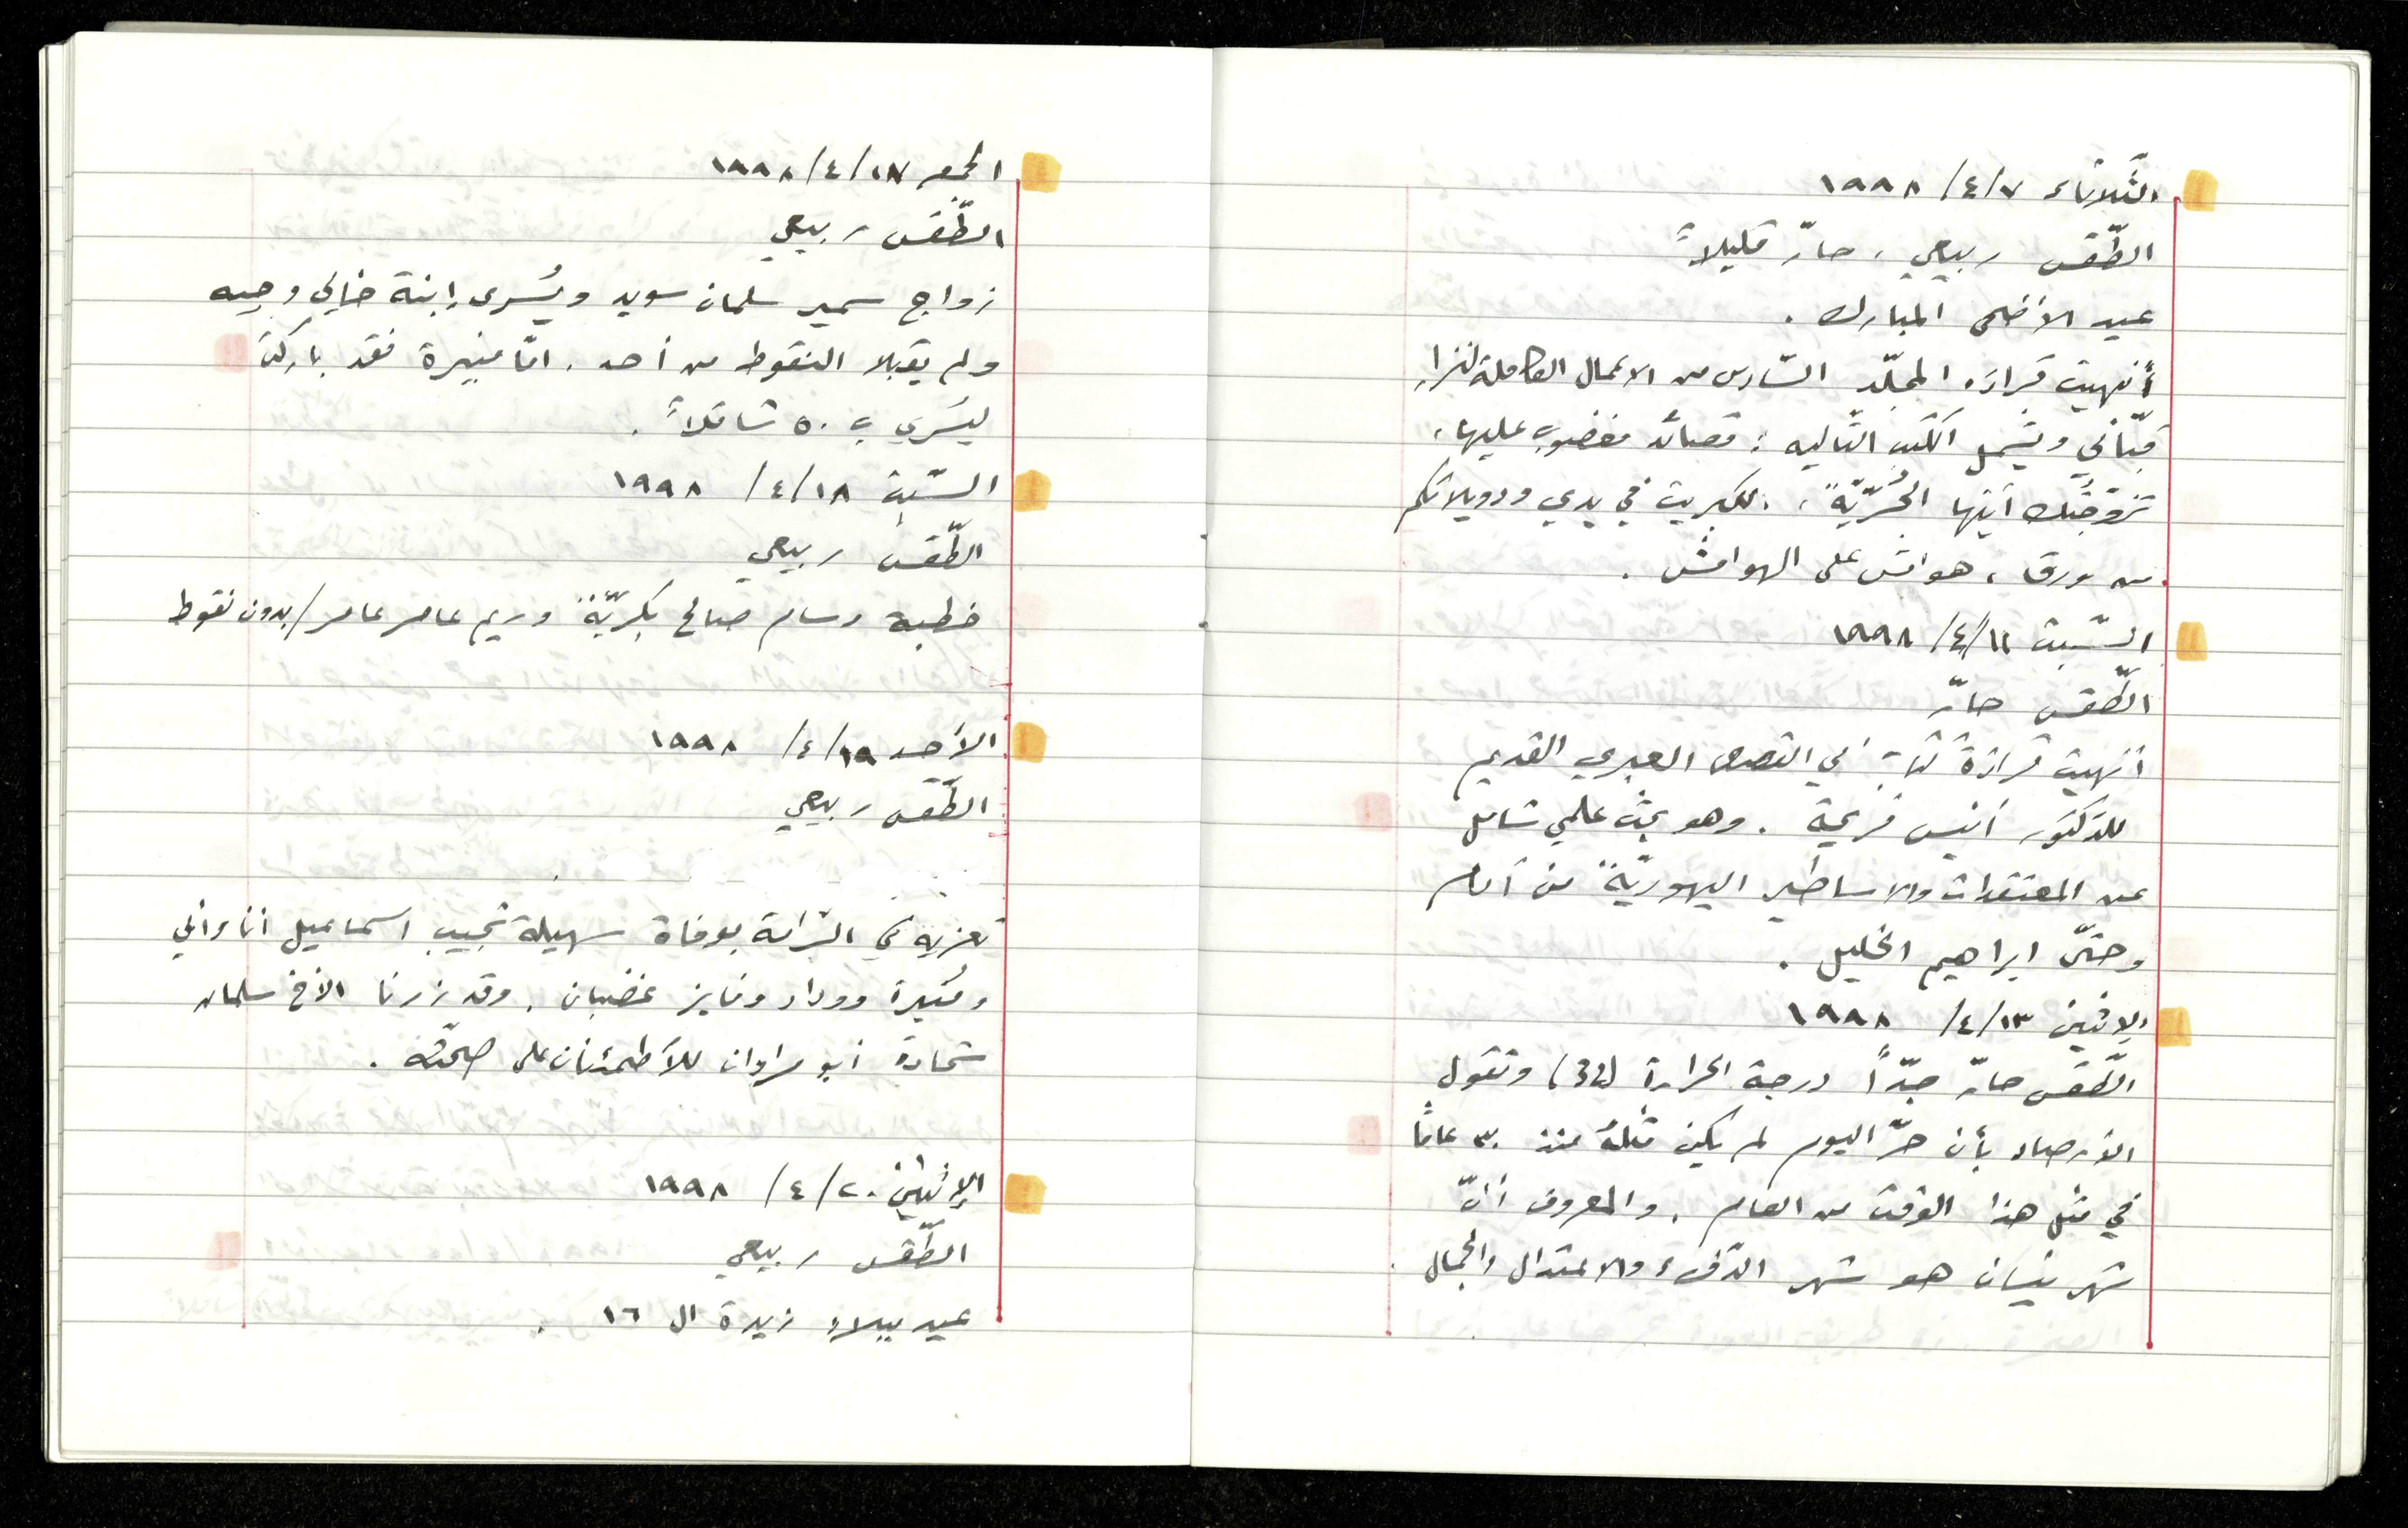 الثّلاثاء ٧/٤/١٩٩٨
الطّقس ربيعي، حارّ قليلاً
عيد الأضحى المبارك.
أنهيت قراءة المجلّد السّادس من الاعمال الكاملة لنزار
قبّاني ويشمل الكتب التّاليه: قصائد مغضوب عليها،
تزوّجتك أيتها الحُرّيّة، الكبريت في يدي ودويلاتكم
من ورق، هوامش على الهوامش.
السّبت ١١/٤/١٩٩٨
الطّقس حارّ
أنهيت قراءة كتاب في القصص العبري القديم
للدّكتور أنيس فريحة. وهو بحث علمي شامل
عن المعتقدات والاساطير اليهوديّة من آدم
وحتّى ابراهيم الخليل.
الإثنين ١٣/٤/١٩٩٨
الطّقس حارّ جدّاً درجة الحرارة (32) وتقول
الأرصاد بأن حرّ اليوم لم يكن مثلهُ منذ ٣٠ عامًا
في مثل هذا الوقت من العام. والمعروف أنّ
شهر نيسان هو شهر الدّفء والاعتدال والجمال.
الجمعه ١٧/٤/١٩٩٨
الطّقس ربيعي
زواج سمير سلمان سويد ويُسرى إبنة خالي وجيه
ولم يقبلا النقوط من أحد. امّا منيرة فقد باركت
ليُسرى ب ٥٠ شاقلاً.
السّبت ١٨/٤/١٩٩٨
الطّقس ربيعي
خطبة وسام صالح بكريّة وريم عامر عامر/بدون نقوط
الأحد ١٩/٤/١٩٩٨
الطّقس ربيعي
تعزيه في الرّامة بوفاة سهيلة نجيب اسماعيل انا واني
ومُنيرة ووداد وفايز غضبان. وقد زرنا الأخ سلمان
شحادة أبو مروان للأطمئنان على صحّته.
الإثنين ٢٠/٤/١٩٩٨
الطّقس ربيعي
عيد ميلاد زبيدة ال ١٦.